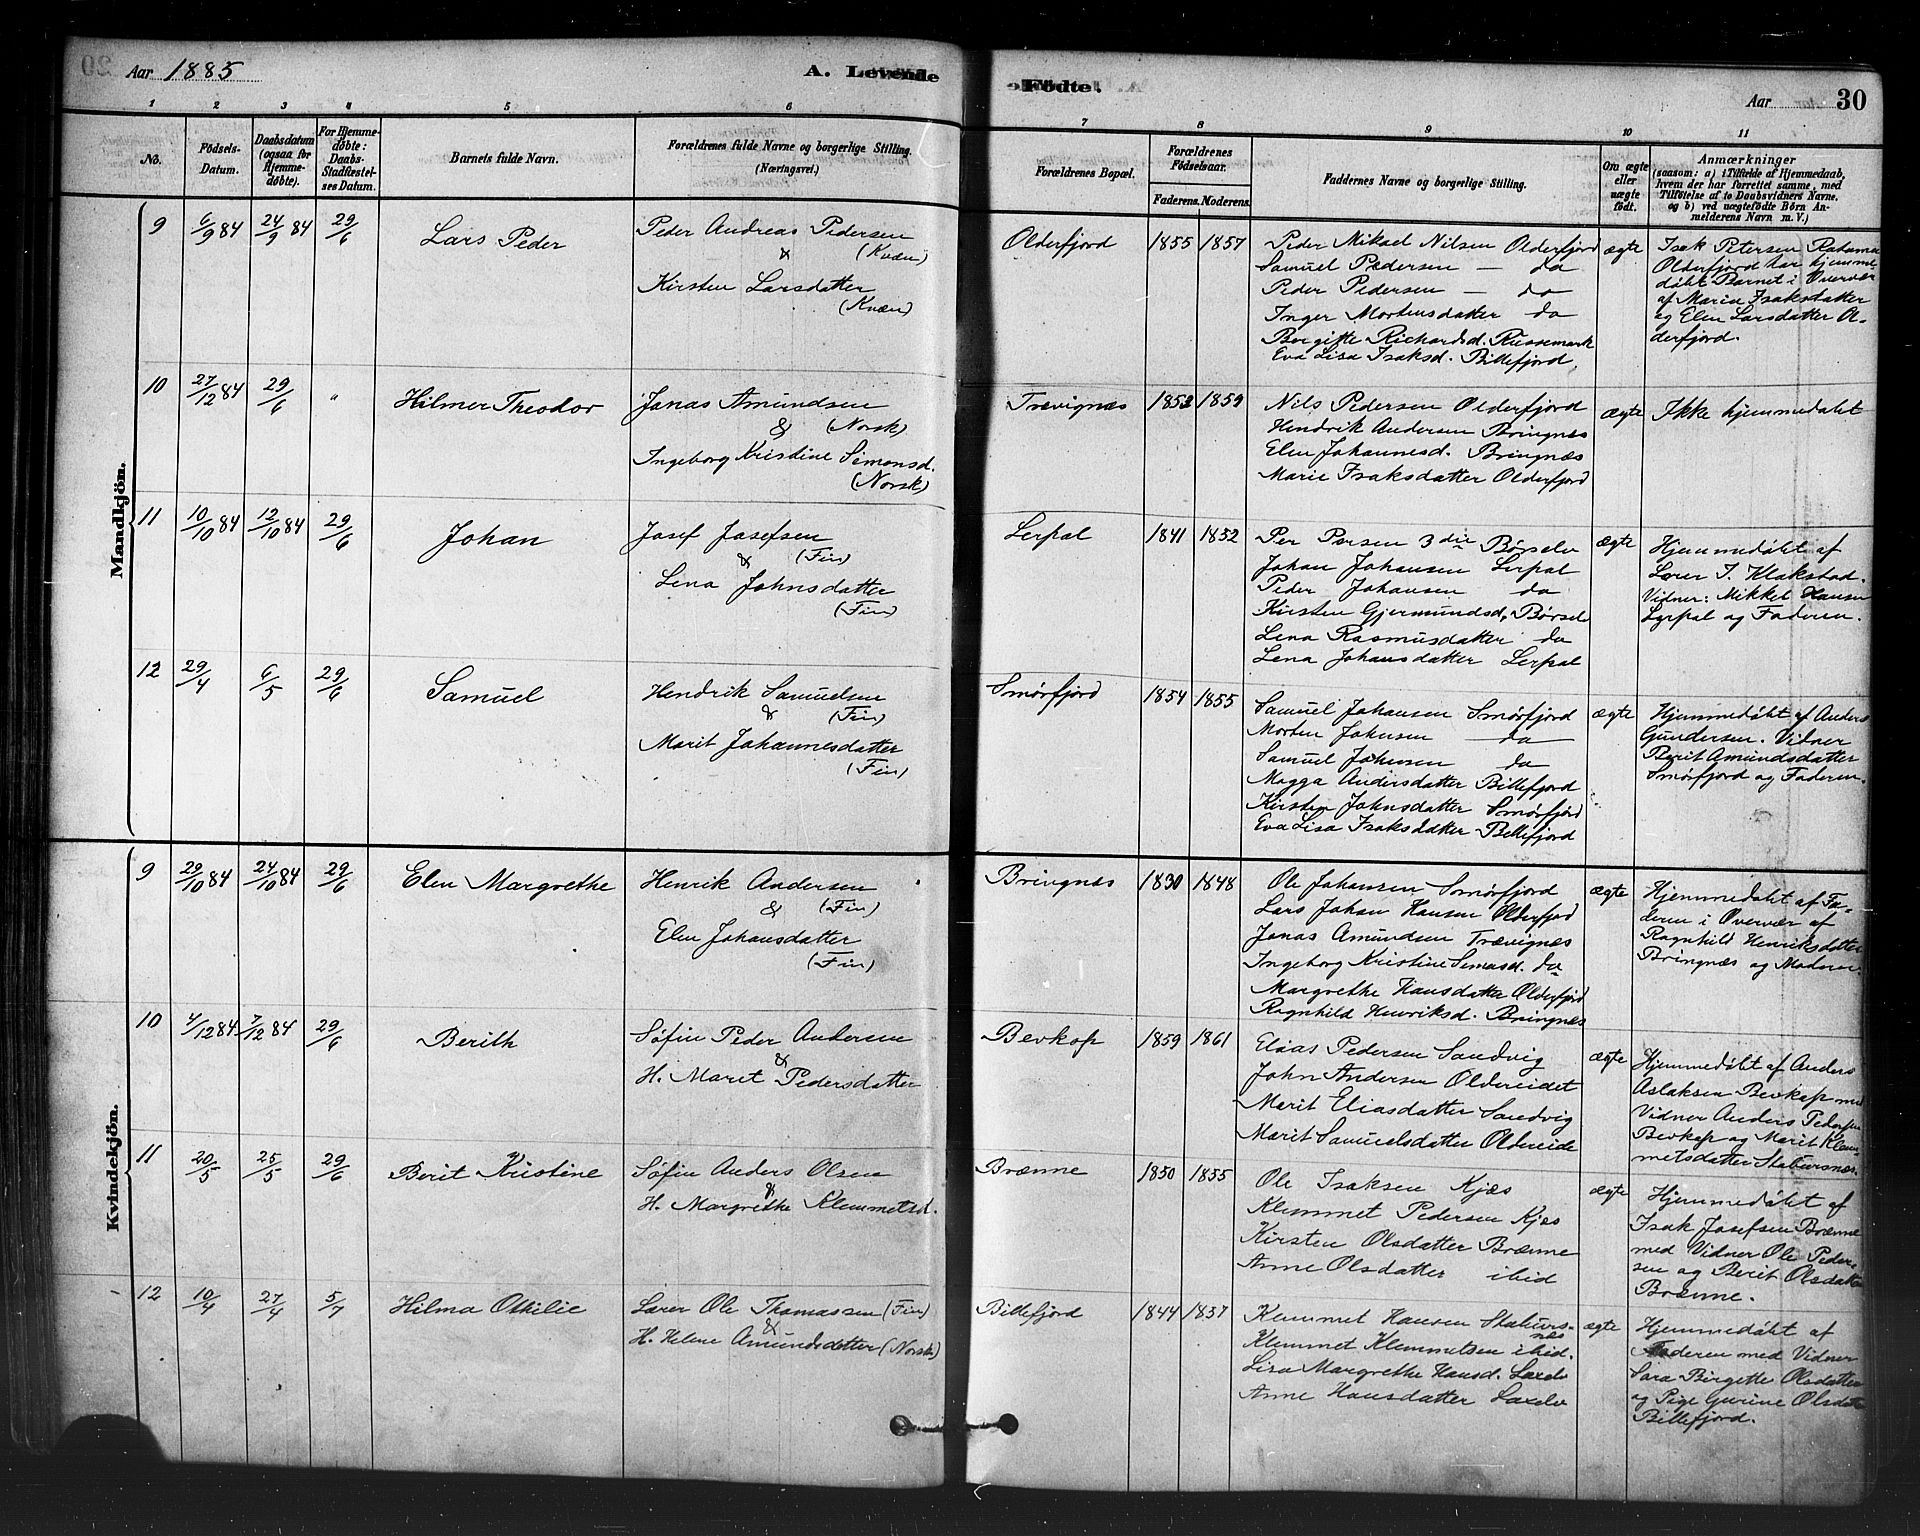 Aar 1885
A. Levende
Fødte.
Aar
30
1 2 3 4 5 6 7 8 9 10 11
No.
Fødsels-
Datum.
Daabsdatum
(ogsaa for
Hjemme-
døbte).
For Hjemme-
døbte:
Daabs-
Stadfæstel-
ses Datum.
Barnets fulde Navn.
Forældrenes fulde Navne og borgerlige Stilling.
(Næringsvei.)
Forældrenes Bopæl.
Forældrenes
Fødselsaar.
Faderens. Moderens.
Faddernes Navne og borgerlige Stilling.
Om ægte
eller
uægte
født.
Anmærkninger
(saasom: a) i Tilfælde af Hjemmedaab,
hvem der har forrettet samme, med
Tilføielse af to Daabsvidners Navne,
og b) ved uægtefødte Børn An-
melderens Navn m. V.)
Mandkjön.
9 6/9 84 24/9 84 29/6 Lars Peder
Peder Andreas Pedersen
& (Kvæn)
Kirsten Larsdatter
(Kvæn)
Olderfjord 1855 1857
Peder Mikael Nilsen Olderfjord
Samuel Pedersen — do
Peder Pedersen — do
Inger Mortensdatter do
Birgitte Richardsd. Russemark
Eva Lisa Isaksd. Billefjord
ægte
Isak Petersen
Olderfjord har hjemme
døbt Barnet i Overvær
af Maria Isaksdatter
og Elen Larsdatter Ol-
derfjord.
10 27/12 84 29/6 " Hilmer Theodor
Jonas Amundsen
& (Norsk)
Ingeborg Kristine Simonsd.
(Norsk)
Trævignæs 1853 1859
Nils Pedersen Olderfjord
Hendrik Andersen Bringnæs
Elen Johannesd. Bringnæs
Marie Isaksdatter Olderfjord
ægte
Ikke hjemmedøbt
11 10/10 84 12/10 84 29/6 Johan
Josef Josefsen
& (Fin)
Lena Johnsdatter
(Fin)
Lerpal 1841 1852
Per Persen 3die Børselv
Johan Johansen Lerpal
Peder Johansen do
Kirsten Gjermundsd. Børselv
Lena Rasmusdatter do
Lena Johansdatter Lerpal
ægte
Hjemmedøbt af
Lærer J. Klakstad.
Vidner: Mikkel Hansen
Lerpal og Faderen.
12 29/4 6/5 29/6 Samuel
Hendrik Samuelsen
& (Fin)
Marit Johannesdatter
(Fin)
Smørfjord 1854 1855
Samuel Johansen Smørfjord
Morten Johnsen do
Samuel Johnsen do
Magga Andersdatter Billefjord
Kirsten Johnsdatter Smørfjord
Eva Lisa Isaksdatter Billefjord
ægte
Hjemmedøbt af Anders
Gundersen. Vidner
Berit Amundsdatter
Smørfjord og Faderen.
Kvindekjön.
9 29/10 84 24/10 84 29/6 Elen Margrethe
Henrik Andersen
& (Fin)
Elen Johansdatter
(Fin)
Bringnæs 1830 1848
Ole Johansen Smørfjord
Lars Johan Hansen Olderfjord
Jonas Amundsen Trævignæs
Ingeborg Kristine Simonsd. do
Margrethe Hansdatter Olderfjord
Ragnhild Henriksd. Bringnæs
ægte
Hjemmedøbt af Fa-
deren i Overvær af
Ragnhild Henriksdatter
Bringnæs og Moderen.
10 4/12 84 7/12 84 29/6 Berith
Søfin Peder Andersen
&
H. Maret Pedersdatter
Bevkop 1859 1861
Elias Pedersen Sandvig
John Andersen Oldereidet
Marit Eliasdatter Sandvig
Marit Samuelsdatter Oldereide
ægte
Hjemmedøbt af Anders
Aslaksen Bevkop med
Vidner Anders Pedersen
Bevkop og Marit Klem-
metsdatter Stabursnæs.
11 20/5 25/5 29/6 Berit Kristine
Søfin Anders Olsen
&
H. Margrethe Klemmetsd.
Brænne 1850 1855
Ole Isaksen Kjæs
Klemmet Pedersen Kjæs
Kirsten Olsdatter Brænne
Anne Olsdatter ibid
ægte
Hjemmedøbt af
Isak Josefsen Brænne
med Vidner Ole Peder-
sen og Berit Olsdatter
Brænne.
12 10/4 27/4 5/7 Hilma Othilie
Lærer Ole Thomassen (Fin)
&
H. Helene Amundsdatter (Norsk)
Billefjord 1844 1837
Klemmet Hansen Staburs-
næs
Klemmet Klemmetsen ibid.
Lisa Margrethe Hansd. Laxelv
Anne Hansdatter Laxelv
ægte
Hjemmedøbt af
Faderen med Vidner
Sara Birgette Olsdatter
og Pige Gurine Olsdatter
Billefjord.